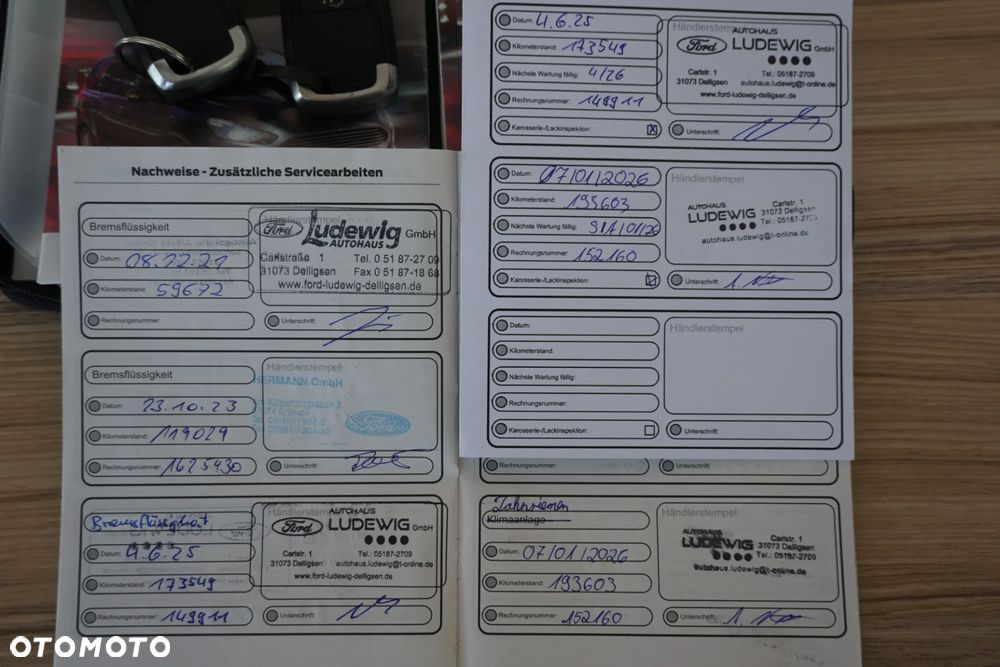 Datum: 4.6.25
Kilometerstand: 173549
Nächste Wartung fällig: 4/26
Rechnungsnummer: 149911
Karosserie-/Lackinspektion: X
Händlerstempel
Ford AUTOHAUS LUDEWIG GmbH
Carlstr. 1 Tel.: 05187-2709
31073 Delligsen autohaus.ludewig@t-online.de
www.ford-ludewig-delligsen.de
Unterschrift:
Datum: 07/01/2026
Kilometerstand:
Nächste Wartung fällig:
Rechnungsnummer: 152160
Karosserie-/Lackinspektion:
Händlerstempel
AUTOHAUS LUDEWIG
Carlstr. 1
31073 Delligsen
Tel.: 05187-2709
autohaus.ludewig@t-online.de
Unterschrift:
Datum:
Kilometerstand:
Nächste Wartung fällig:
Rechnungsnummer:
Karosserie-/Lackinspektion:
Händlerstempel
Unterschrift:
Nachweise - Zusätzliche Servicearbeiten
Bremsflüssigkeit
Datum: 08.12.21
Kilometerstand: 59672
Rechnungsnummer:
Händlerstempel
Ford Ludewig GmbH
AUTOHAUS
Carlstraße 1 Tel. 0 51 87-27 09
31073 Delligsen Fax 0 51 87-18 68
www.ford-ludewig-delligsen.de
Unterschrift:
Bremsflüssigkeit
Datum: 23.10.23
Kilometerstand: 119029
Rechnungsnummer: 1625430
Händlerstempel
HERMANN GmbH
Ford
Unterschrift:
Bremsflüssigkeit
Datum: 4.6.25
Kilometerstand: 173549
Rechnungsnummer: 149911
Händlerstempel
Ford AUTOHAUS LUDEWIG GmbH
Carlstr. 1 Tel.: 05187-2709
31073 Delligsen autohaus.ludewig@t-online.de
www.ford-ludewig-delligsen.de
Unterschrift:
Rechnungsnummer:
Unterschrift:
Zahnriemen
Klimaanlage
Datum: 07/01/2026
Kilometerstand: 193603
Rechnungsnummer: 152160
Händlerstempel
AUTOHAUS LUDEWIG
Carlstr. 1
31073 Delligsen
Tel.: 05187-2709
autohaus.ludewig@t-online.de
Unterschrift:
OTOMOTO